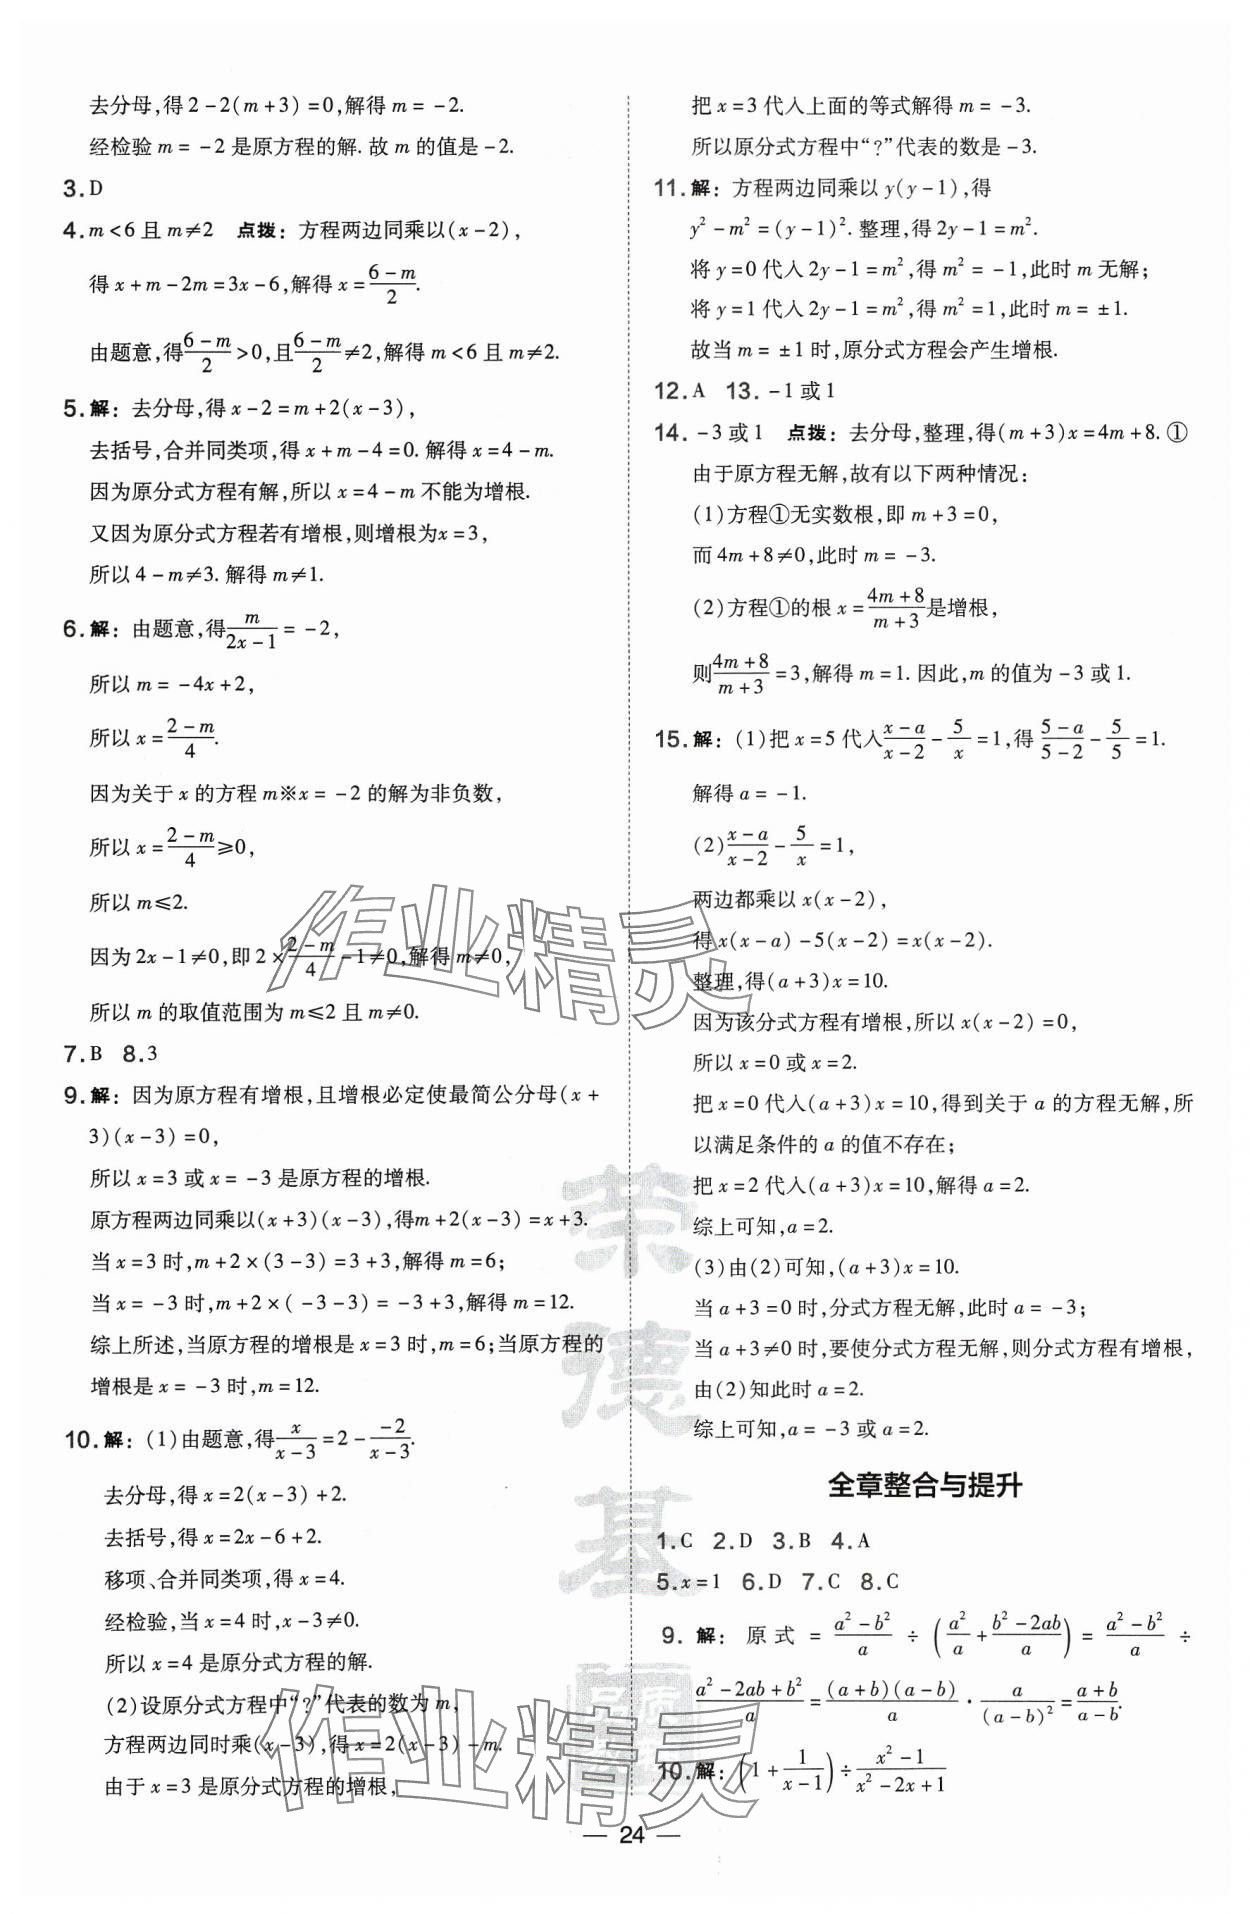 去分母,得2-2(m+3)=0,解得m=-2.
经检验m=-2是原方程的解.故m的值是-2.
3.D
4.m<6且m≠2 点拨:方程两边同乘以(x-2),
得x+m-2m=3x-6,解得x=(6-m)/2.
由题意,得(6-m)/2>0,且(6-m)/2≠2,解得m<6且m≠2.
5.解:去分母,得x-2=m+2(x-3),
去括号,合并同类项,得x+m-4=0.解得x=4-m.
因为原分式方程有解,所以x=4-m不能为增根.
又因为原分式方程若有增根,则增根为x=3,
所以4-m≠3.解得m≠1.
6.解:由题意,得m/(2x-1)=-2,
所以m=-4x+2,
所以x=(2-m)/4.
因为关于x的方程m※x=-2的解为非负数,
所以x=(2-m)/4≥0,
所以m≤2.
因为2x-1≠0,即2×(2-m)/4-1≠0,解得m≠0,
所以m的取值范围为m≤2且m≠0.
7.B 8.3
9.解:因为原方程有增根,且增根必定使最简公分母(x+
3)(x-3)=0,
所以x=3或x=-3是原方程的增根.
原方程两边同乘以(x+3)(x-3),得m+2(x-3)=x+3.
当x=3时,m+2×(3-3)=3+3,解得m=6;
当x=-3时,m+2×(-3-3)=-3+3,解得m=12.
综上所述,当原方程的增根是x=3时,m=6;当原方程的
增根是x=-3时,m=12.
10.解:(1)由题意,得x/(x-3)=2-(-2)/(x-3).
去分母,得x=2(x-3)+2.
去括号,得x=2x-6+2.
移项、合并同类项,得x=4.
经检验,当x=4时,x-3≠0.
所以x=4是原分式方程的解.
(2)设原分式方程中“?”代表的数为m,
方程两边同时乘(x-3),得x=2(x-3)-m.
由于x=3是原分式方程的增根,
把x=3代入上面的等式解得m=-3.
所以原分式方程中“?”代表的数是-3.
11.解:方程两边同乘以y(y-1),得
y²-m²=(y-1)².整理,得2y-1=m².
将y=0代入2y-1=m²,得m²=-1,此时m无解;
将y=1代入2y-1=m²,得m²=1,此时m=±1.
故当m=±1时,原分式方程会产生增根.
12.A 13.-1或1
14.-3或1 点拨:去分母,整理,得(m+3)x=4m+8.①
由于原方程无解,故有以下两种情况:
(1)方程①无实数根,即m+3=0,
而4m+8≠0,此时m=-3.
(2)方程①的根x=(4m+8)/(m+3)是增根,
则(4m+8)/(m+3)=3,解得m=1.因此,m的值为-3或1.
15.解:(1)把x=5代入(x-a)/(x-2)-5/x=1,得(5-a)/(5-2)-5/5=1.
解得a=-1.
(2)(x-a)/(x-2)-5/x=1,
两边都乘以x(x-2),
得x(x-a)-5(x-2)=x(x-2).
整理,得(a+3)x=10.
因为该分式方程有增根,所以x(x-2)=0,
所以x=0或x=2.
把x=0代入(a+3)x=10,得到关于a的方程无解,所
以满足条件的a的值不存在;
把x=2代入(a+3)x=10,解得a=2.
综上可知,a=2.
(3)由(2)可知,(a+3)x=10.
当a+3=0时,分式方程无解,此时a=-3;
当a+3≠0时,要使分式方程无解,则分式方程有增根,
由(2)知此时a=2.
综上可知,a=-3或a=2.
全章整合与提升
1.C 2.D 3.B 4.A
5.x=1 6.D 7.C 8.C
9.解:原式=(a²-b²)/a÷(a²/a+(b²-2ab)/a)=(a²-b²)/a÷
(a²-2ab+b²)/a=(a+b)(a-b)/a·a/(a-b)²=(a+b)/(a-b).
10.解:(1+1/(x-1))÷(x²-1)/(x²-2x+1)
— 24 —
作业精灵
作业精灵
荣德基